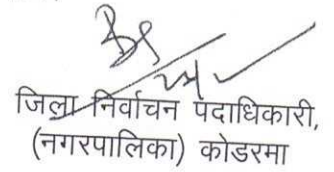 जिला निर्वाचन पदाधिकारी,
(नगरपालिका) कोडरमा